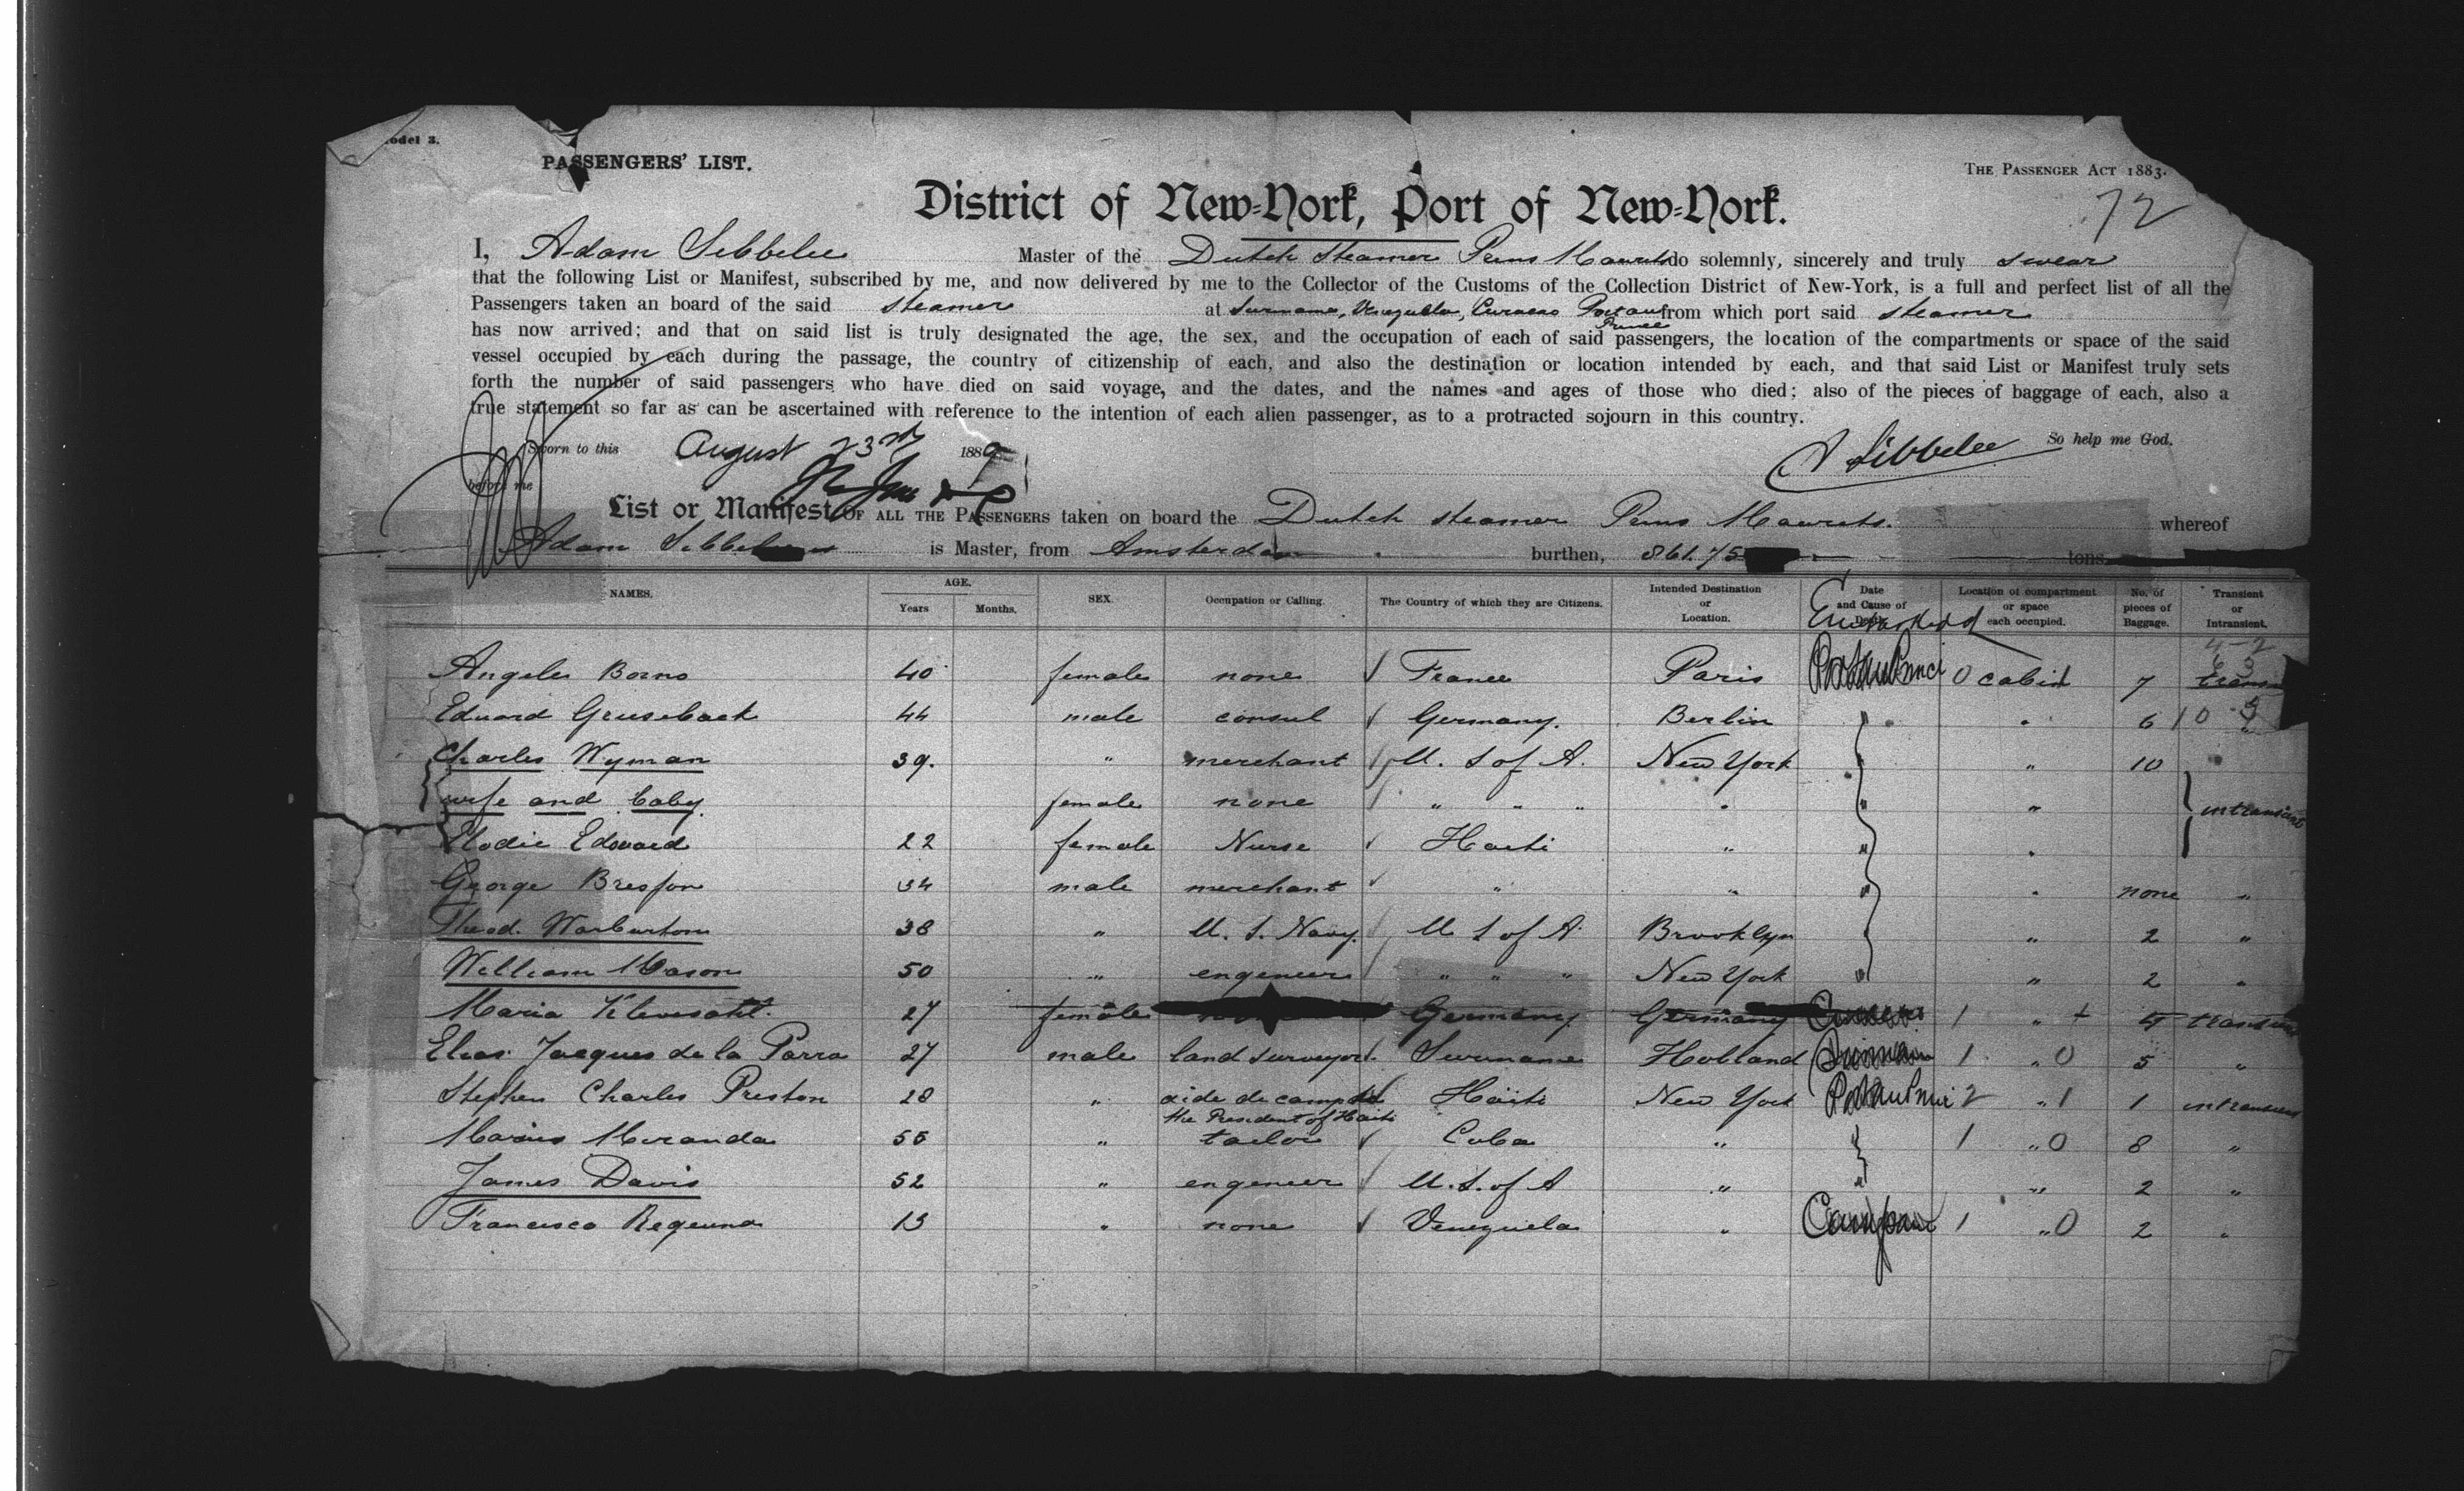 odel 3.
PASSENGERS' LIST.
THE PASSENGER ACT 1883.
72
District of New-York, Port of New-York.
I, Adam Sibbelee Master of the Dutch steamer Prins Maurits do solemnly, sincerely and truly swear
that the following List or Manifest, subscribed by me, and now delivered by me to the Collector of the Customs of the Collection District of New-York, is a full and perfect list of all the
Passengers taken an board of the said steamer at Suriname, Venezuela, Curacao Port au Prince from which port said steamer
has now arrived; and that on said list is truly designated the age, the sex, and the occupation of each of said passengers, the location of the compartments or space of the said
vessel occupied by each during the passage, the country of citizenship of each, and also the destination or location intended by each, and that said List or Manifest truly sets
forth the number of said passengers who have died on said voyage, and the dates, and the names and ages of those who died; also of the pieces of baggage of each, also a
true statement so far as can be ascertained with reference to the intention of each alien passenger, as to a protracted sojourn in this country.
Sworn to this August 23rd 1889 A Sibbelee So help me God.
before me
List or Manifest OF ALL THE PASSENGERS taken on board the Dutch steamer Prins Maurits. whereof
Adam Sibbelee is Master, from Amsterdam burthen, 861.75 tons
NAMES. AGE. Years Months. SEX. Occupation or Calling. The Country of which they are Citizens. Intended Destination or Location. Date and Cause of Death Embarked Location of compartment or space each occupied. No. of pieces of Baggage. Transient or Intransient.
4-2
Angele Borno 40 female none France Paris Port au Prince 0 cabin 7
Eduard Gruseback 44 male consul Germany. Berlin " " 6
Charles Wyman 39. " merchant U. S of A. New York " " 10
wife and baby. female none " " " " " " intransient
Elodie Edouard 22 female Nurse Haiti " " "
George Bresson 34 male merchant " " " " none "
Theod. Warburton 38 " U. S. Navy. U S of A. Brooklyn " 2 "
William Mason 50 " engeneer " " " New York " " 2 "
Maria 27 female Germany. Germany 1 " 4
Elias Jacques de la Parra 27 male land surveyor. Suriname Holland Surinam 1 " 0 5 "
Stephen Charles Preston 28 " aide de camp to the President of Haiti Haiti New York Port au Prince 2 " 1 1 intransient
Marius Miranda 55 " tailor Cuba " 1 " 0 8 "
James Davis 52 " engeneer U. S. of A " " " 2 "
Francisco 13 " none Venezuela " 1 " 0 2 "